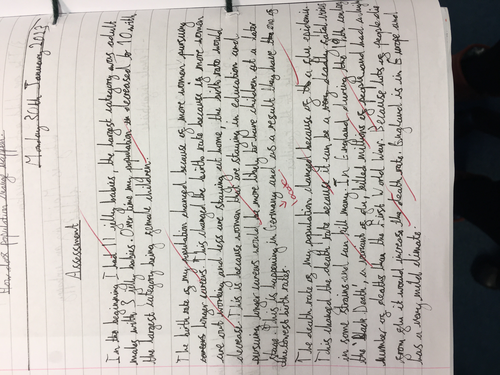 How does Population change happen?
Monday 30th January 2023
Assessment
In the beginning I had 11 jelly babies, the largest category was adult
males with 3 jelly babies. Over time my population increased to 10 with
the largest category being female children.
The birth rate of my population changed because of more women pursuing
careers longer careers. This changed the birth rate because if more women
are out working and less are staying at home the birth rate would
decrease. This is because women that are staying in education and
pursuing longer careers would be more likely to have children at a later
stage. This is happening in Germany and as a result they have the one of
the lowest birth rates.
The death rate of my population changed because of the a flu epidemic
This changed the death rate because it can be a very deadly, fatal virus
in some strains and can kill many. In England during the 19th century
the 'Black Death', a variant of flu, killed millions of people and had a high
number of deaths than the First World War. Because lots of people die
from flu it would increase the death rate. England is in Europe and
has a very mild climate.